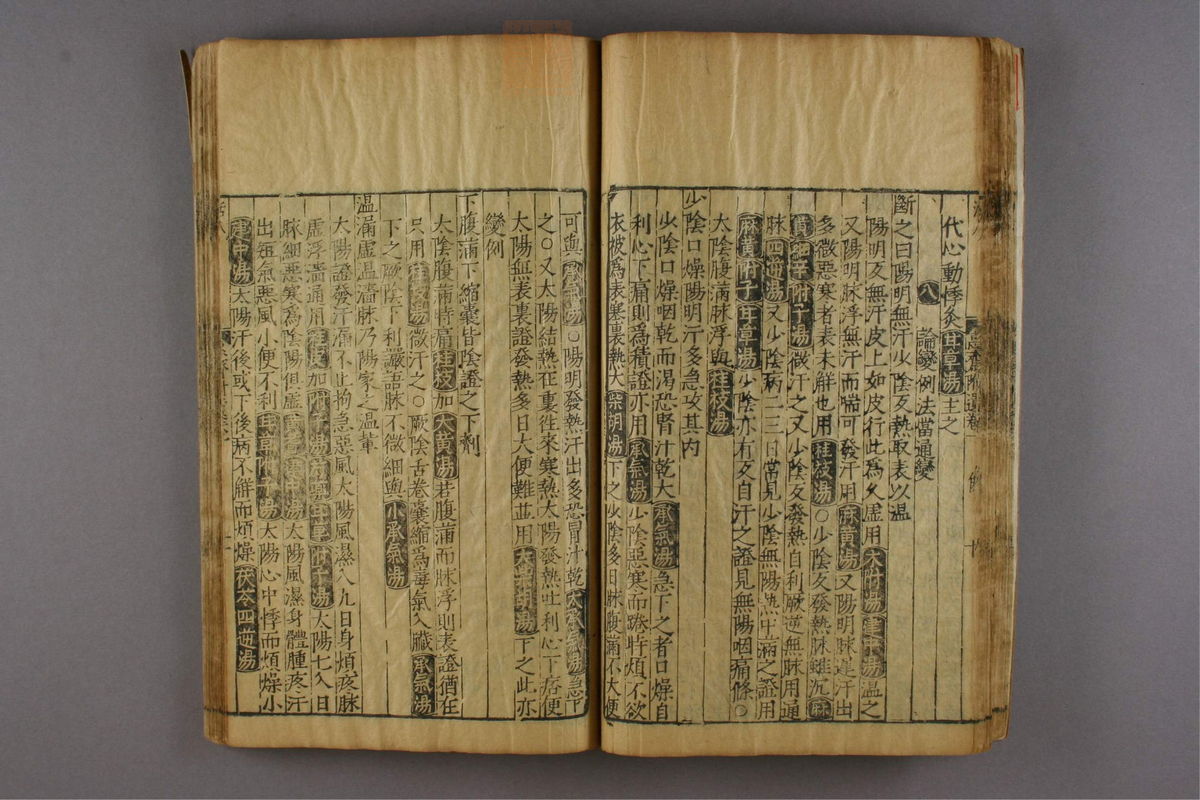 代心動悸灸甘草湯主之
八 論變例法當通變
斷之曰陽明無汗少陰反熱取表以溫
陽明反無汗皮上如皮行此爲久虛用木附湯建中湯溫之
又陽明脉浮無汗而喘可發汗用麻黄湯又陽明脉遲汗出
多微惡寒者表未解也用桂枝湯○少陰反發熱脉雖沉麻
黄細辛附子湯微汗之又少陰反發熱自利厥逆無脉用通
脉四逆湯又少陰病二三日常見少陰無陽熱中滿之證用
麻黄附子甘草湯少陰亦有反自汗之證見無陽咽痛條○
太陰腹滿脉浮與桂枝湯
少陰口燥陽明汗多急攻其内
少陰口燥咽乾而渴恐腎汁乾大承氣湯急下之者口燥自
利心下痛則爲積證亦用承氣湯少陰惡寒而踡時煩不欲
衣被爲表寒裏熱大柴胡湯下之少陰多日脉腹滿不大便
可與承氣湯○陽明發熱汗出多恐胃汁乾大承氣湯急下
之○又太陽結熱在裏徃來寒熱太陽發熱吐利心下痞便
太陽無表裏證發熱多日大便難並用大柴胡湯下之此亦
變例
下腹滿下縮囊皆陰證之下劑
太陰腹滿時痛桂枝加大黄湯若腹滿而脉浮則表證猶在
只用桂枝湯微汗之○厥陰舌卷囊縮爲毒氣入臟承氣湯
下之厥陰下利讝語脉不微細與小承氣湯
温漏虚温濇脉乃陽家之温葷
太陽證發汗漏不止拘急惡風太陽風濕八九日身煩疼脉
虛浮濇通用桂枝加附子湯 甘草附子湯太陽七八日
脉細惡寒爲陰陽但虛 建中湯太陽風濕身體腫疼汗
出短氣惡風小便不利甘草附子湯太陽心中悸而煩燥小
建中湯太陽汗後或下後病不觧而煩燥茯苓四逆湯